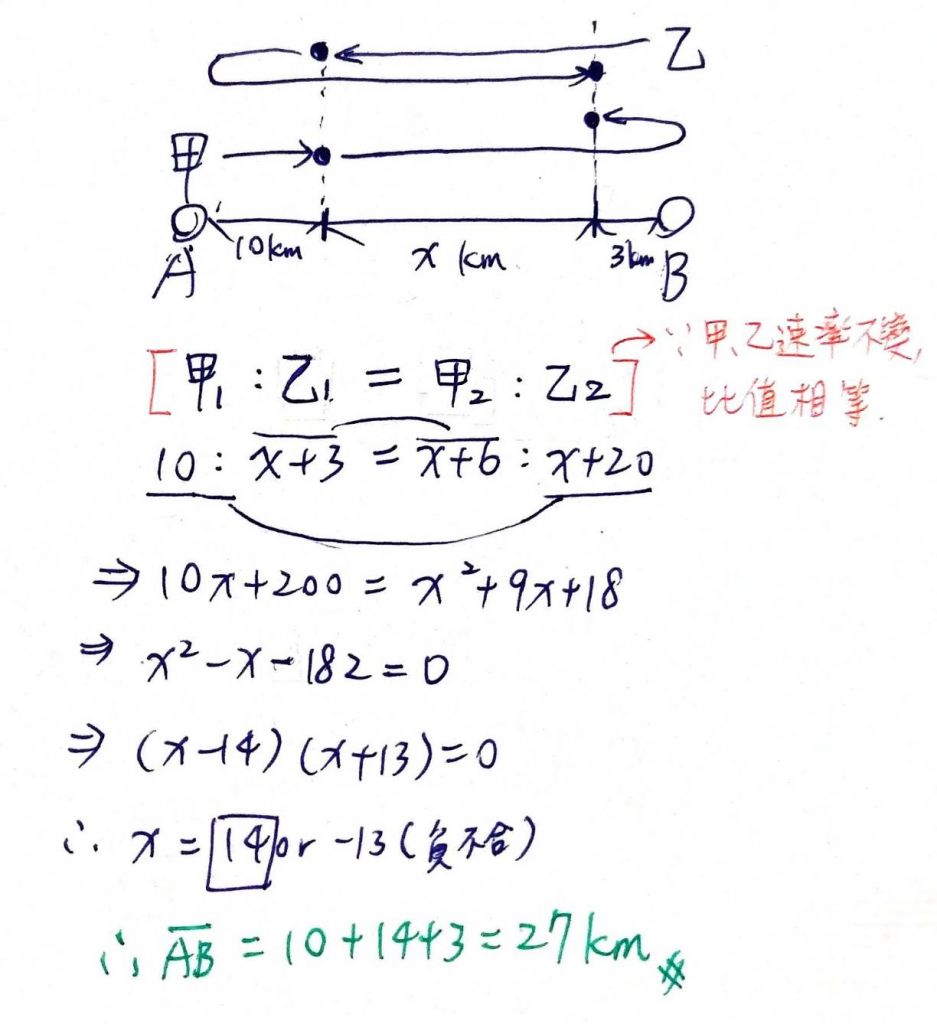 乙
甲
10km x km 3km
A B
[甲₁ : 乙₁ = 甲₂ : 乙₂] → ∵甲、乙速率不變,
比值相等.
10 : x+3 = x+6 : x+20
⇒ 10x+200 = x²+9x+18
⇒ x²-x-182=0
⇒ (x-14)(x+13)=0
∴ x = 14 or -13 (負不合)
∴ AB = 10+14+3 = 27 km